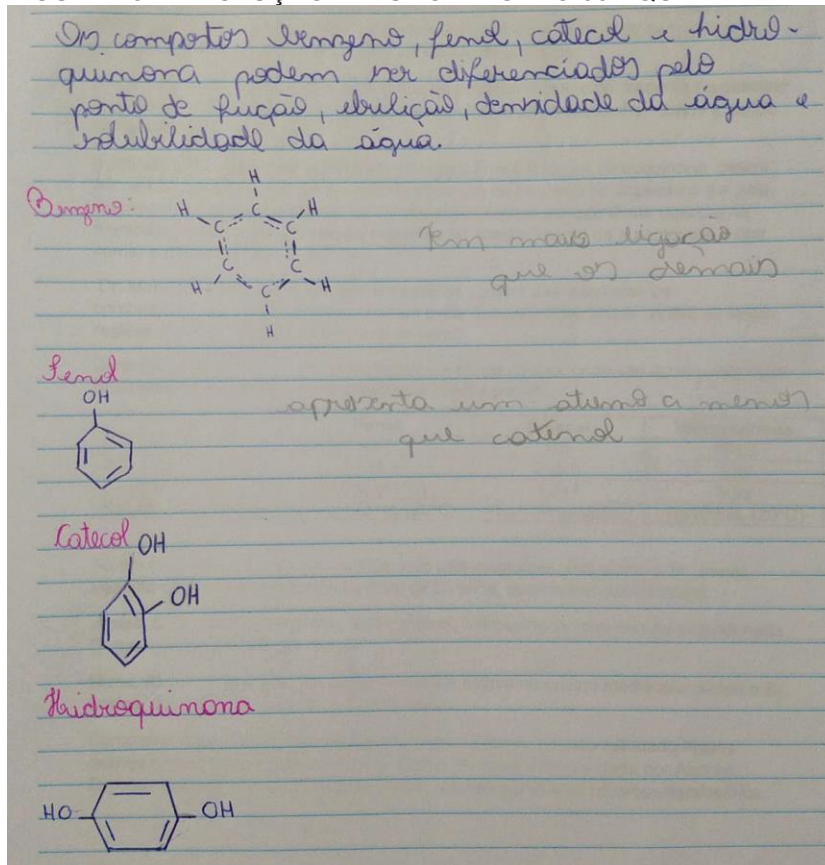 Os compostos benzeno, fenol, catecol e hidro-
quinona podem ser diferenciados pelo
ponto de fução, ebulição, densidade da água e
solubilidade da água.
Benzeno:
H
H C H
C C
C C
H C H
H
tem mais ligação
que os demais
Fenol
OH
apresenta um atomo a menos
que catenol
Catecol OH
OH
Hidroquinona
HO OH